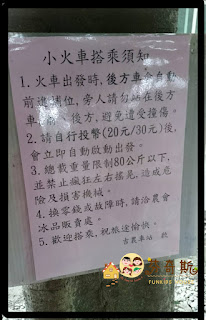 小火車搭乘須知
1. 火車出發時,後方車會自動
前進補位,旁人請勿站在後方
後方,避免遭受撞傷。
2. 請自行投幣(20元/30元)後,
會立即自動啟動出發。
3. 總載重量限制80公斤以下,
並禁止瘋狂左右搖晃,造成危
險及損害機械。
4. 換零錢或故障時,請洽農會
冰品販賣處。
5. 歡迎搭乘,祝旅途愉快。
吉農車站 啟